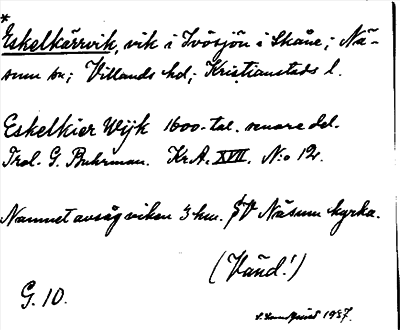 *
Eskelkärrvik, vik i Ivösjön i Skåne; Nä-
sum sn; Villands hd; Kristianstads l.
Eskelkier Wijk 1600-tal. senare del.
Trol. G. Buhrman. Kr.A. XVII. N:o 12.
Namnet avsåg viken 3 km. SV Näsum kyrka.
(Vänd!)
G. 10.
1937.